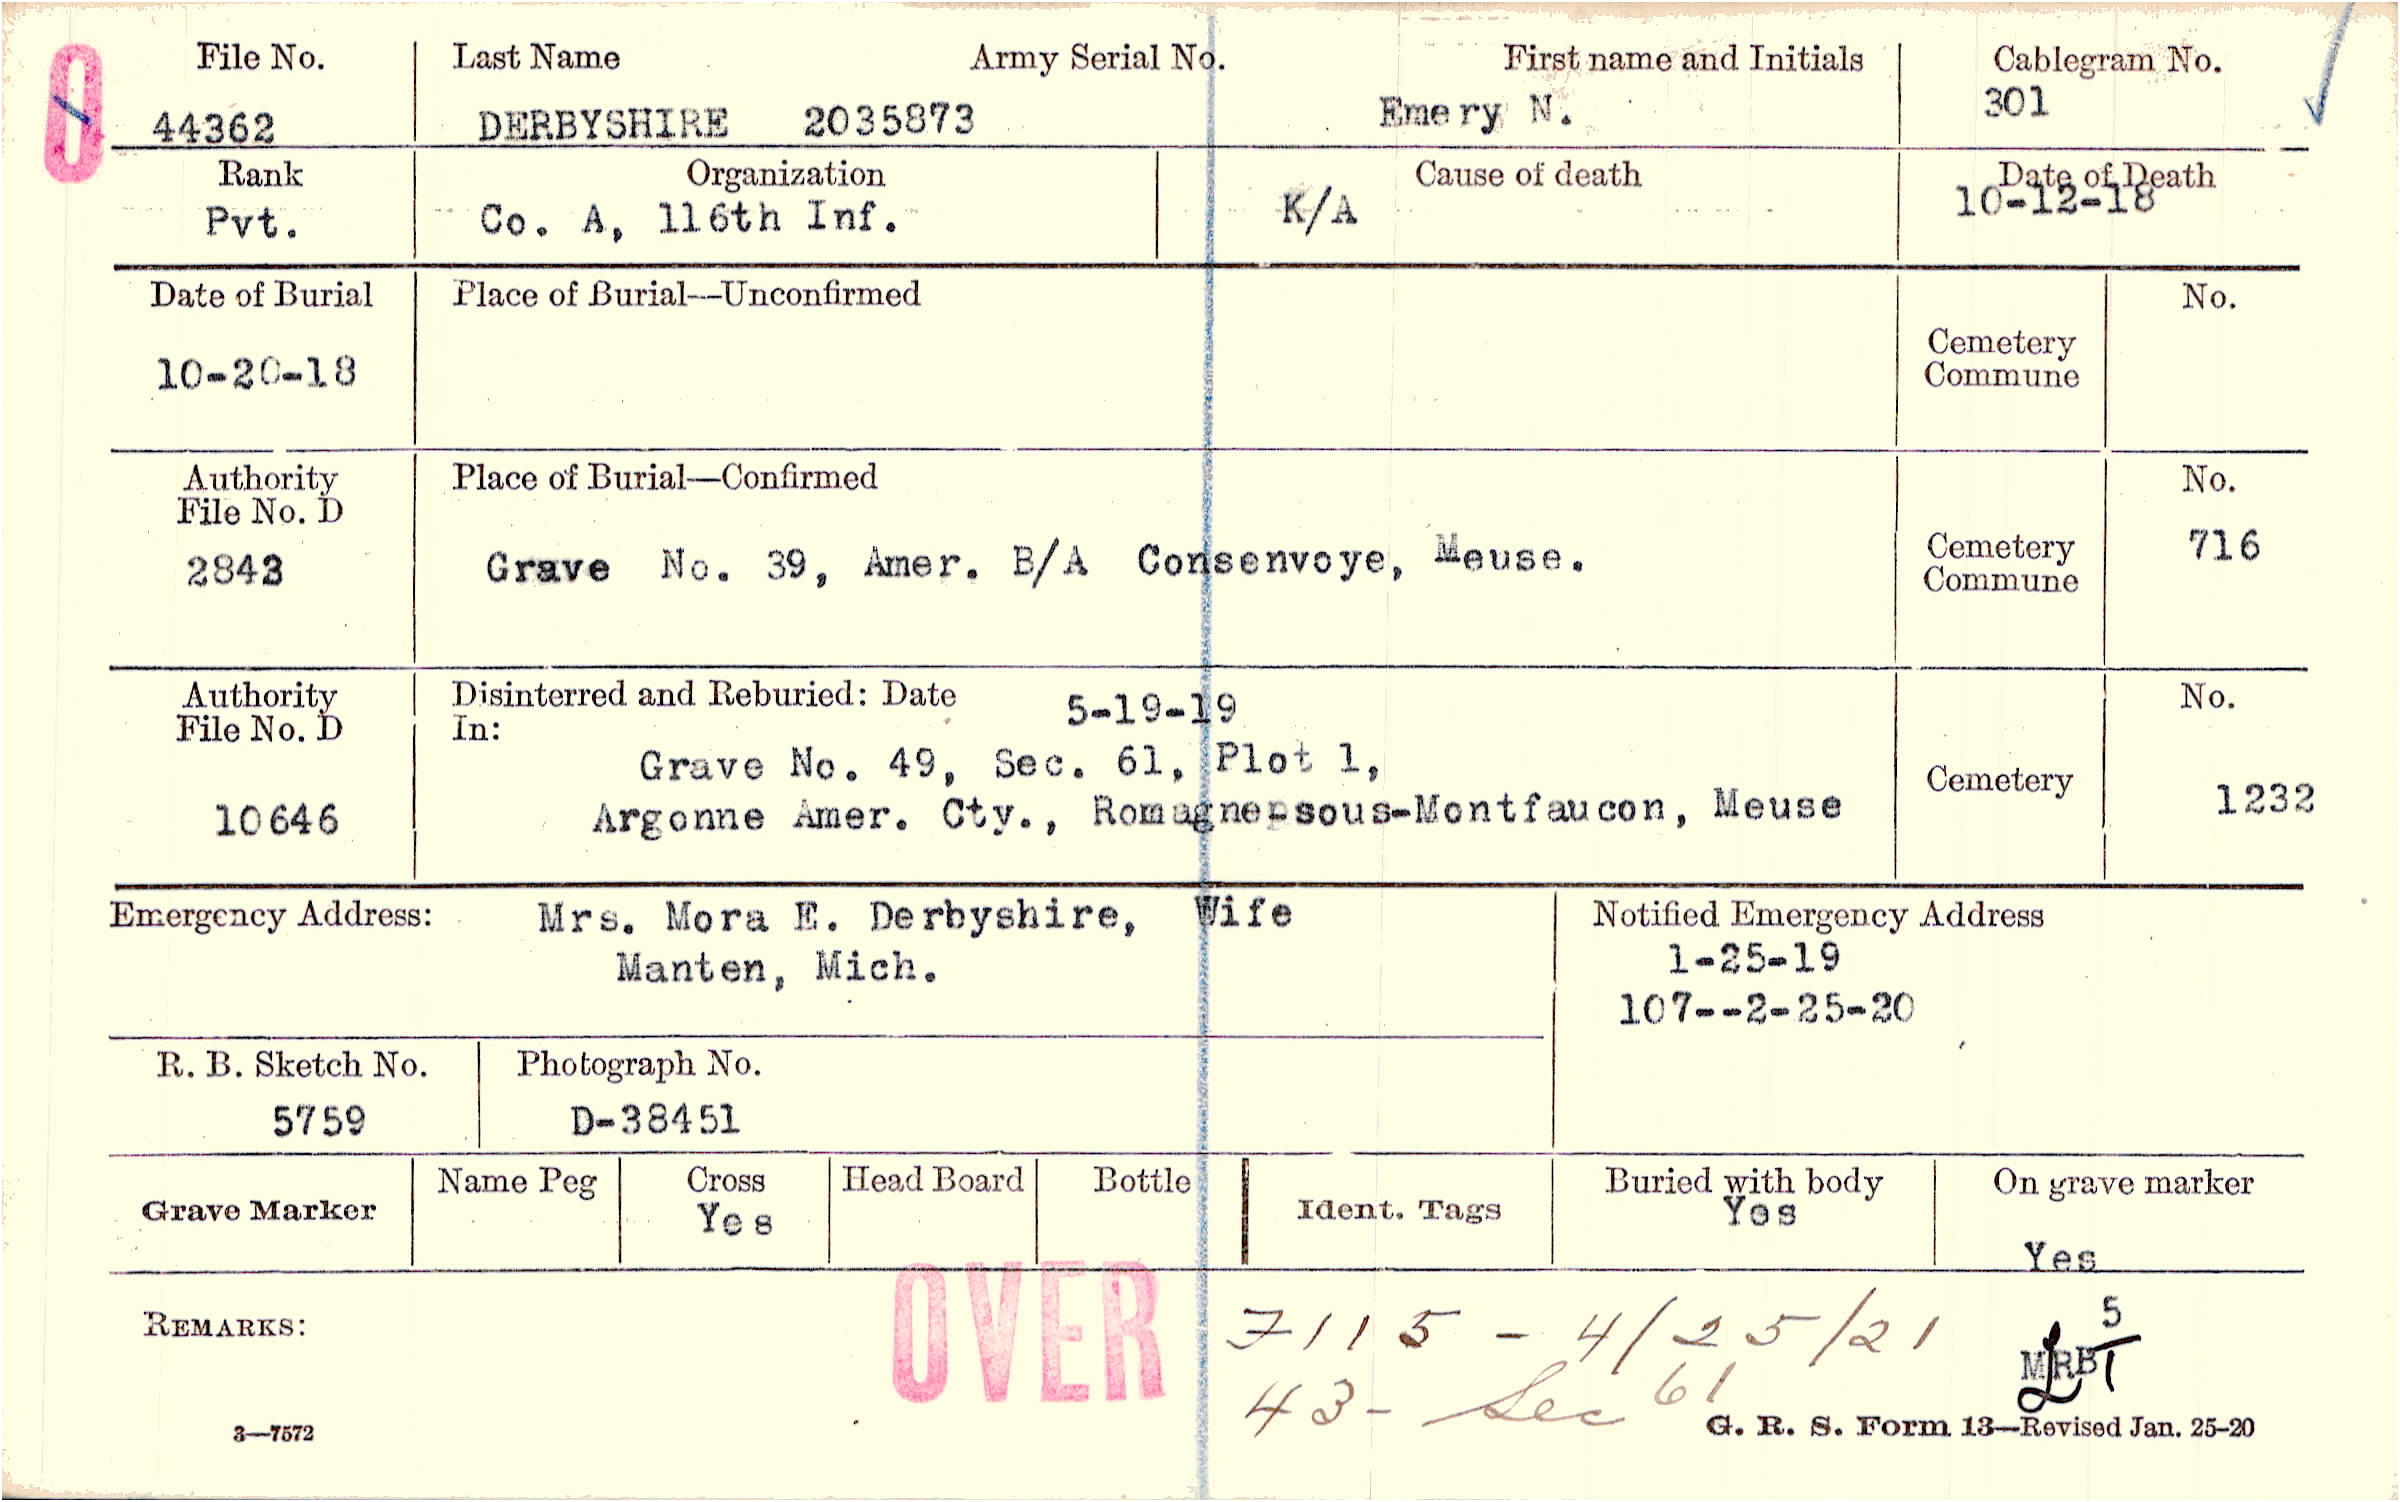 0
File No. Last Name Army Serial No. First name and Initials Cablegram No.
44362 DERBYSHIRE 2035873 Emery N. 301
Rank Organization Cause of death Date of Death
Pvt. Co. A, 116th Inf. K/A 10-12-18
Date of Burial Place of Burial—Unconfirmed No.
10-20-18
Cemetery
Commune
Authority Place of Burial—Confirmed No.
File No. D
2843 Grave No. 39, Amer. B/A Consenvoye, Meuse. 716
Cemetery
Commune
Authority Disinterred and Reburied: Date 5-19-19 No.
File No. D In:
Grave No. 49, Sec. 61, Plot 1,
Cemetery
10646 Argonne Amer. Cty., Romagne-sous-Montfaucon, Meuse 1232
Emergency Address: Mrs. Mora E. Derbyshire, Wife
Manten, Mich.
Notified Emergency Address
1-25-19
107--2-25-20
R. B. Sketch No. Photograph No.
5759 D-38451
Grave Marker Name Peg Cross Head Board Bottle Ident. Tags Buried with body On grave marker
Yes Yes Yes
REMARKS:
OVER
7115 - 4/25/21
43- Sec 61
5
MRB
1
3—7572
G. R. S. Form 13—Revised Jan. 25-20